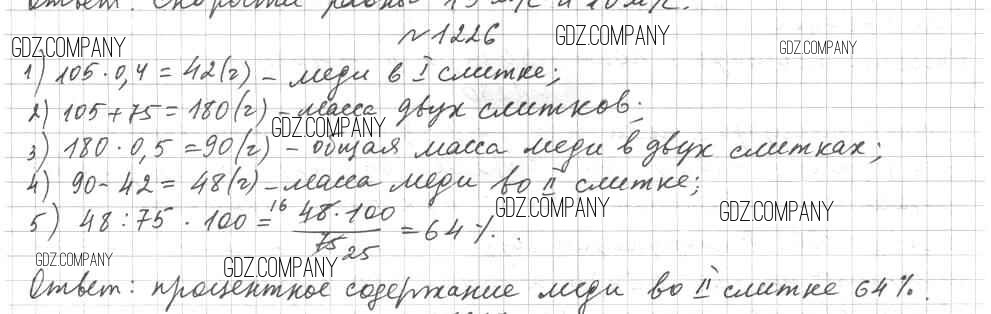 Ответ: Скорости равны 15 м/с и 10 м/с.
№ 1226
1) 105 · 0,4 = 42 (г) – меди в I слитке;
2) 105 + 75 = 180 (г) – масса двух слитков;
3) 180 · 0,5 = 90 (г) – общая масса меди в двух слитках;
4) 90 - 42 = 48 (г) – масса меди во II слитке;
5) 48 : 75 · 100 = 16 48 · 100 / 75 25 = 64 %.
Ответ: процентное содержание меди во II слитке 64 %.
GDZ.COMPANY
GDZ.COMPANY
GDZ.COMPANY
GDZ.COMPANY
GDZ.COMPANY
GDZ.COMPANY
GDZ.COMPANY
GDZ.COMPANY